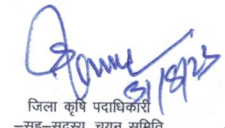 31/8/23
जिला कृषि पदाधिकारी
–सह–सदस्य चयन समिति